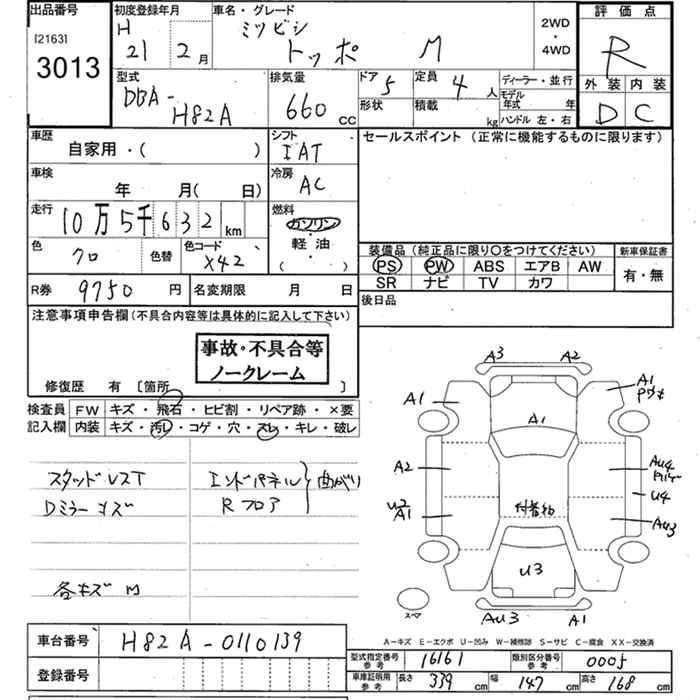 出品番号
[2163]
3013
初度登録年月
H
21 2月
車名・グレード
ミツビシ
トッポ M
2WD
・
4WD
評価点
R
外装 内装
D C
型式
DBA-
H82A
排気量
660 cc
ドア 5
定員 4人
形状
積載 kg
ディーラー・並行
モデル
年式 年
ハンドル 左・右
車歴
自家用・( )
シフト
IAT
セールスポイント (正常に機能するものに限ります)
車検
年 月( 日)
冷房
AC
走行
10万5千632km
燃料
ガソリン
・
軽油
( )
色
クロ
色替
色コード
X42
装備品 (純正品に限り○をつけてください)
新車保証書
PS PW ABS エアB AW
SR ナビ TV カワ
有・無
R券 9750円
名変期限 月 日
後日品
注意事項申告欄(不具合内容等は具体的に記入して下さい)
事故・不具合等
ノークレーム
修復歴 有 [箇所 ]
検査員
記入欄
FW キズ・飛石・ヒビ割・リペア跡・×要
内装 キズ・汚レ・コゲ・穴・スレ・キレ・破レ
スタッドレスT
Dミラーキズ
各キズ M
エンドパネル
Rフロア
曲がり
A3 A2
A1
A1
A1
A2
AU4
U4
U2
A1
付着物
AU3
U3
スペア
AU3 A1
A-キズ E-エクボ U-凹み W-補修跡 S-サビ C-腐食 XX-交換済
車台番号 H82A-0110139
登録番号
型式指定番号
参考
16161
類別区分番号
参考
0005
車庫証明用
参考
長さ 339cm 幅 147cm 高さ 168cm